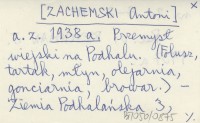 [ZACHEMSKI Antoni] x
a. z. 1938 a. Przemysł
wiejski na Podhalu. (Folusz,
tartak, młyn, olejarnia,
gonciarnia, browar.) –
Ziemia Podhalańska 3,